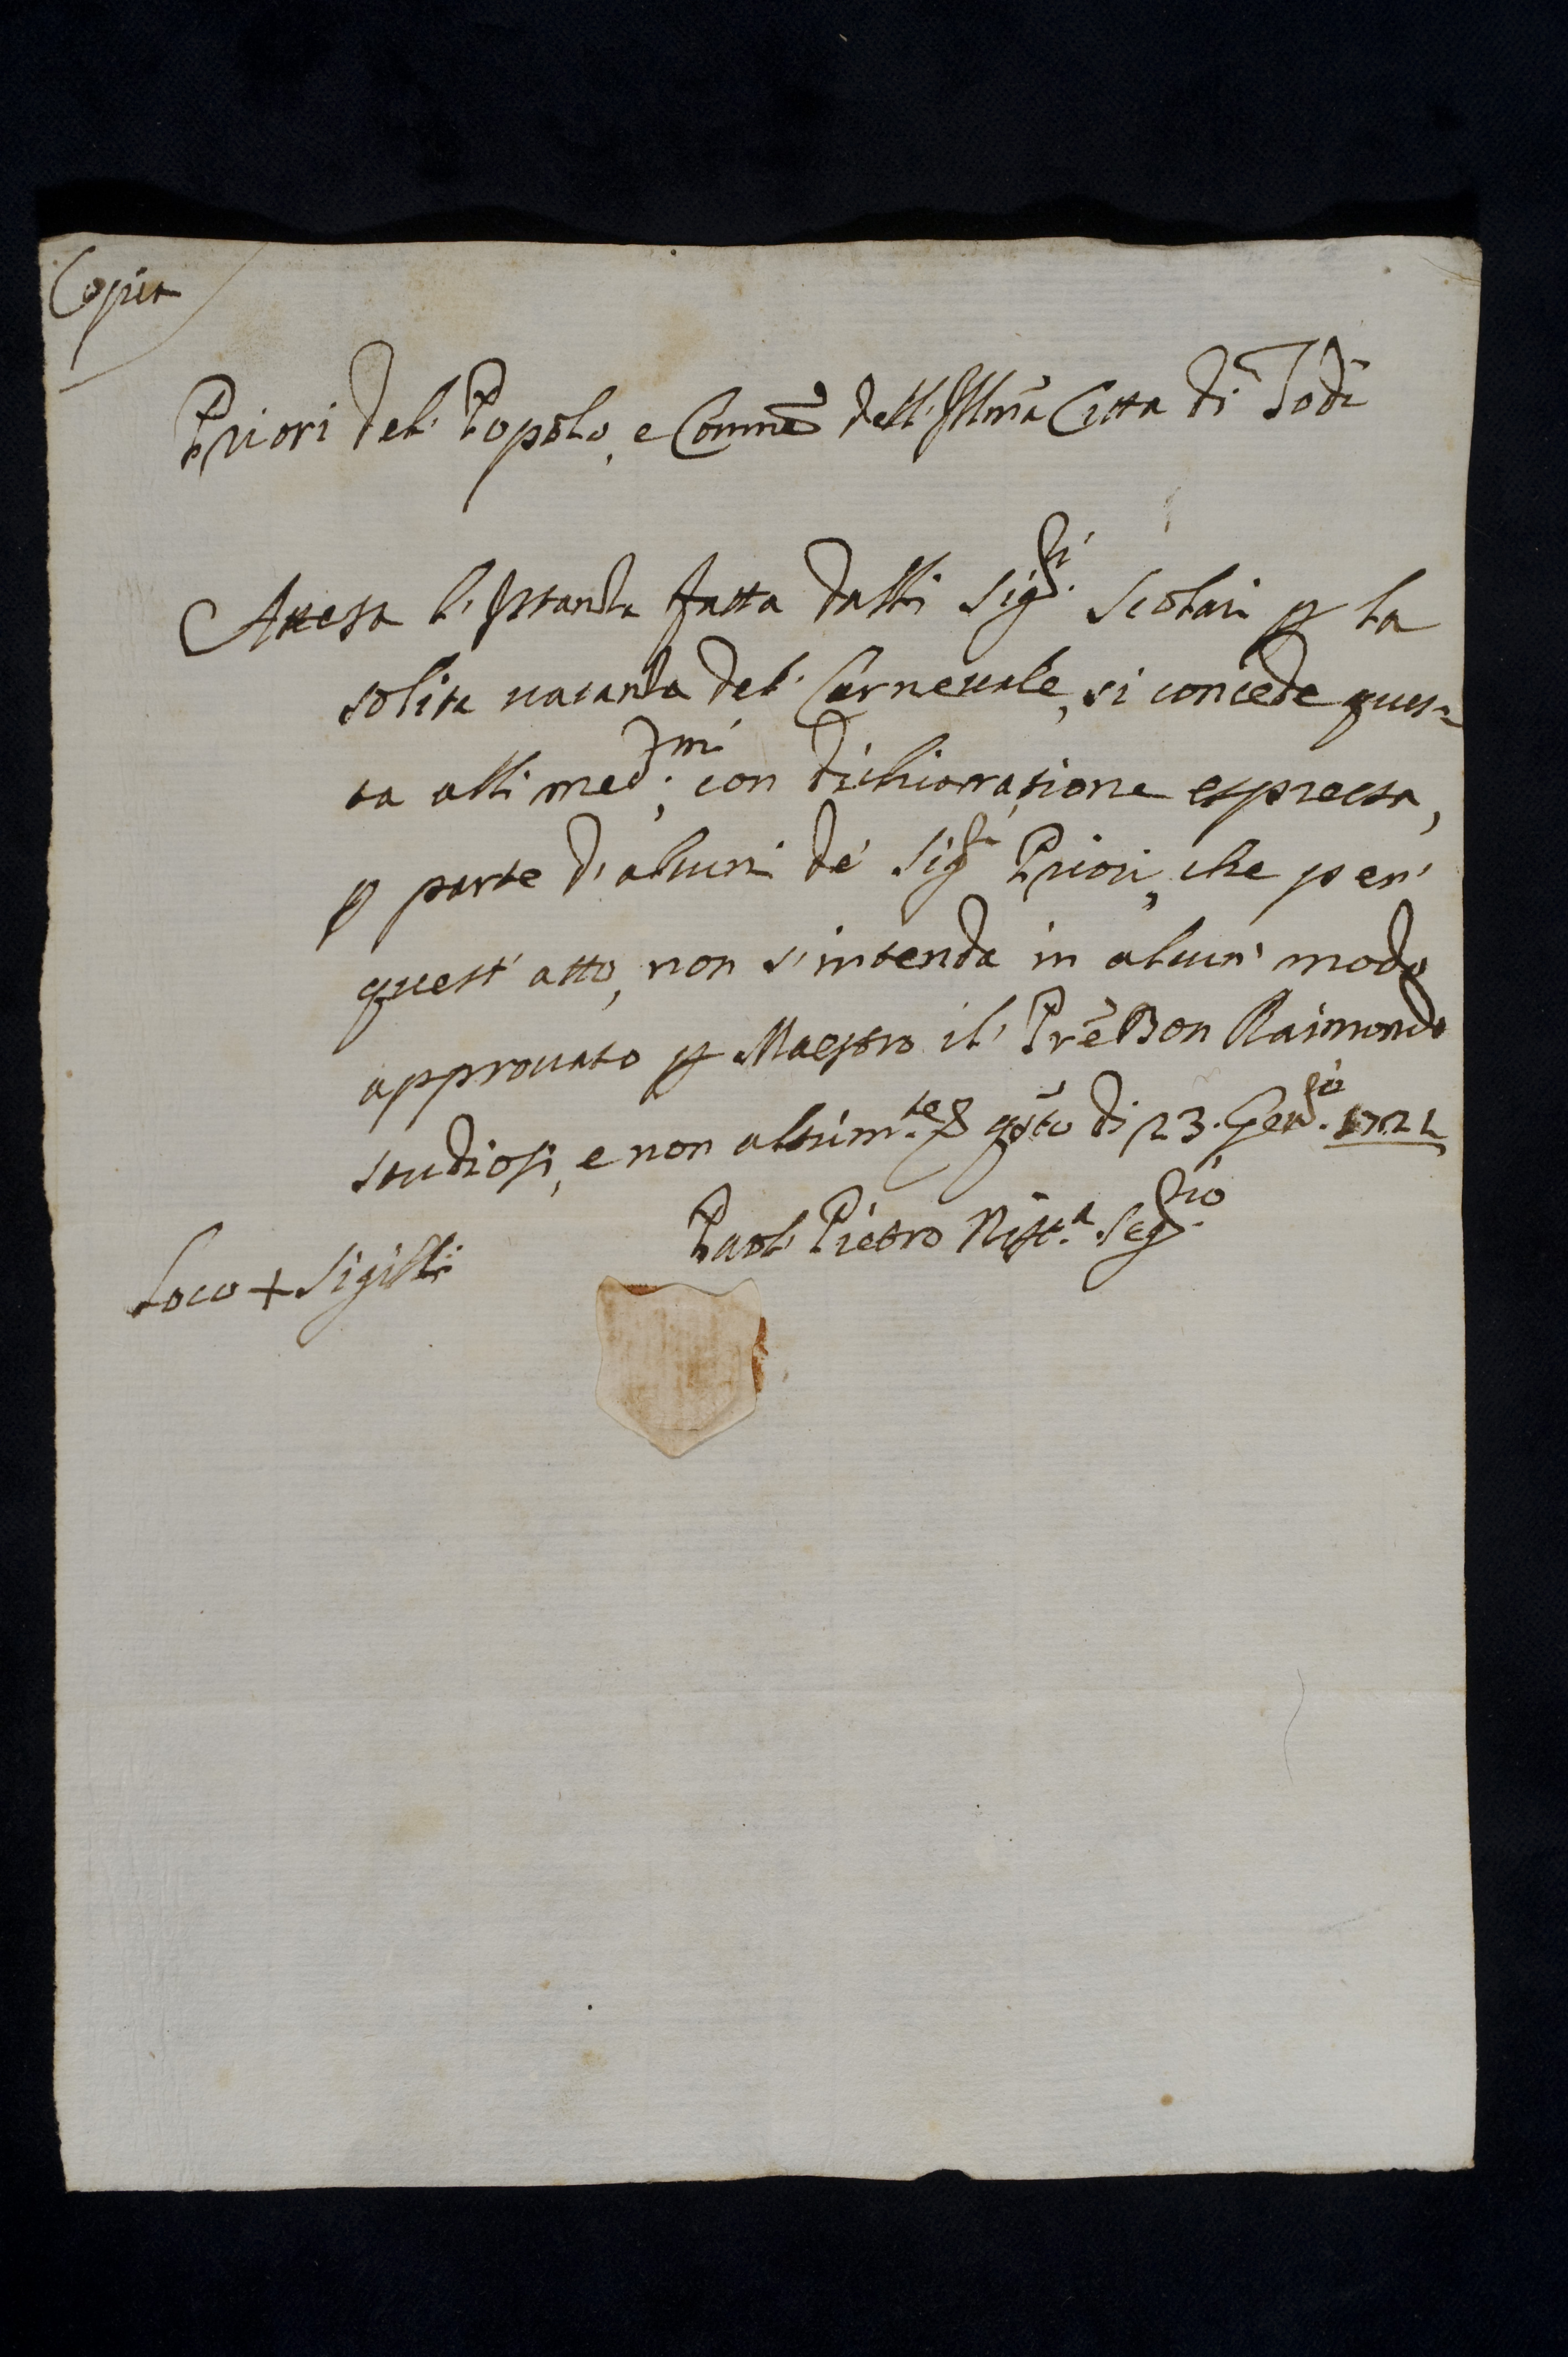 Copia
Priori del Popolo, e Comne dell' Illma Citta di Todi
Attesa l' Istanza fatta dalli Sigri Scolari p la
solita vacanza del Carnevale, si concede ques-
ta alli medmi; con dichiarazione espressa,
p parte d' alcuni de' Sigri Priori, che per
quest' atto, non s' intenda in alcun modo
approvato p Maestro il Pre Bon Raimondo
studiosi, e non altrimte qsto di 23. Genro. 1721
Paol Pietro Segrio
Loco + Sigilli